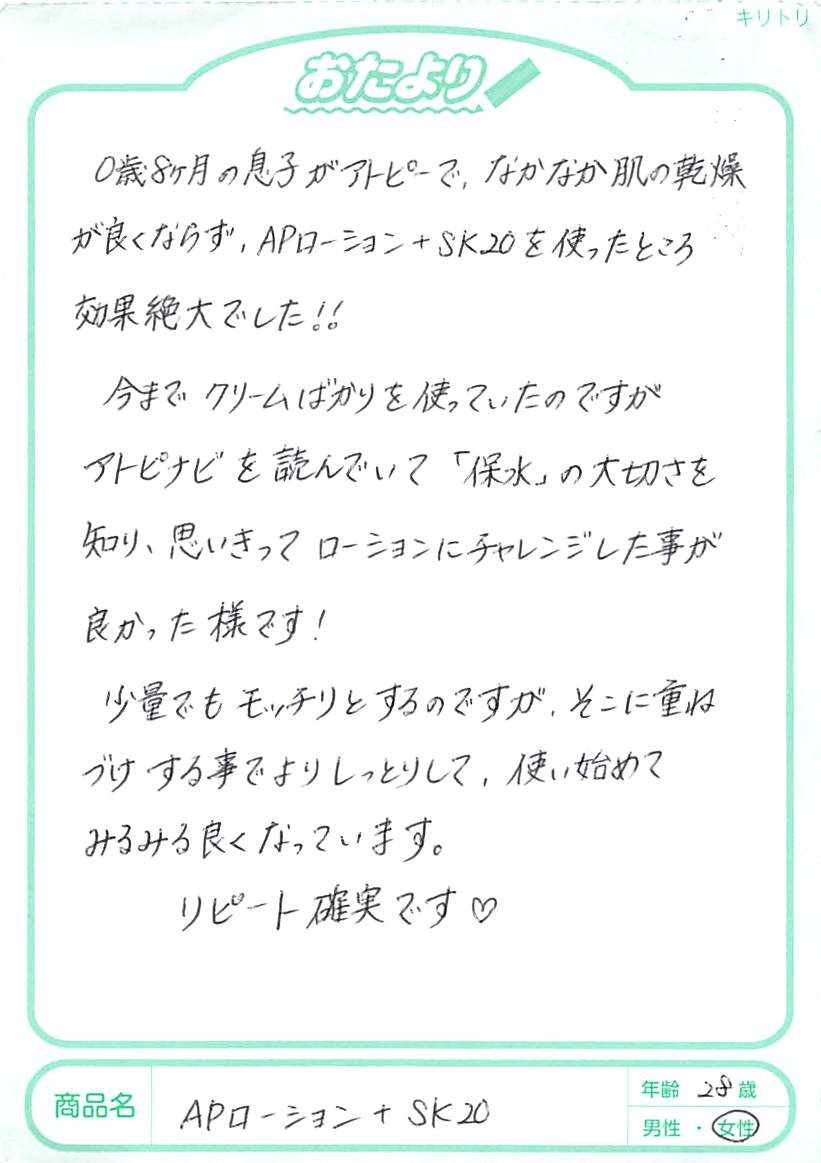 キリトリ
おたより
0歳8ヶ月の息子がアトピーで、なかなか肌の乾燥
が良くならず、APローション+SK20を使ったところ
効果絶大でした!!
今までクリームばかりを使っていたのですが
アトピナビを読んでいて「保水」の大切さを
知り、思いきってローションにチャレンジした事が
良かった様です!
少量でもモッチリとするのですが、そこに重ね
づけする事でよりしっとりして、使い始めて
みるみる良くなっています。
リピート確実です♡
商品名 APローション+SK20
年齢 28歳
男性・女性